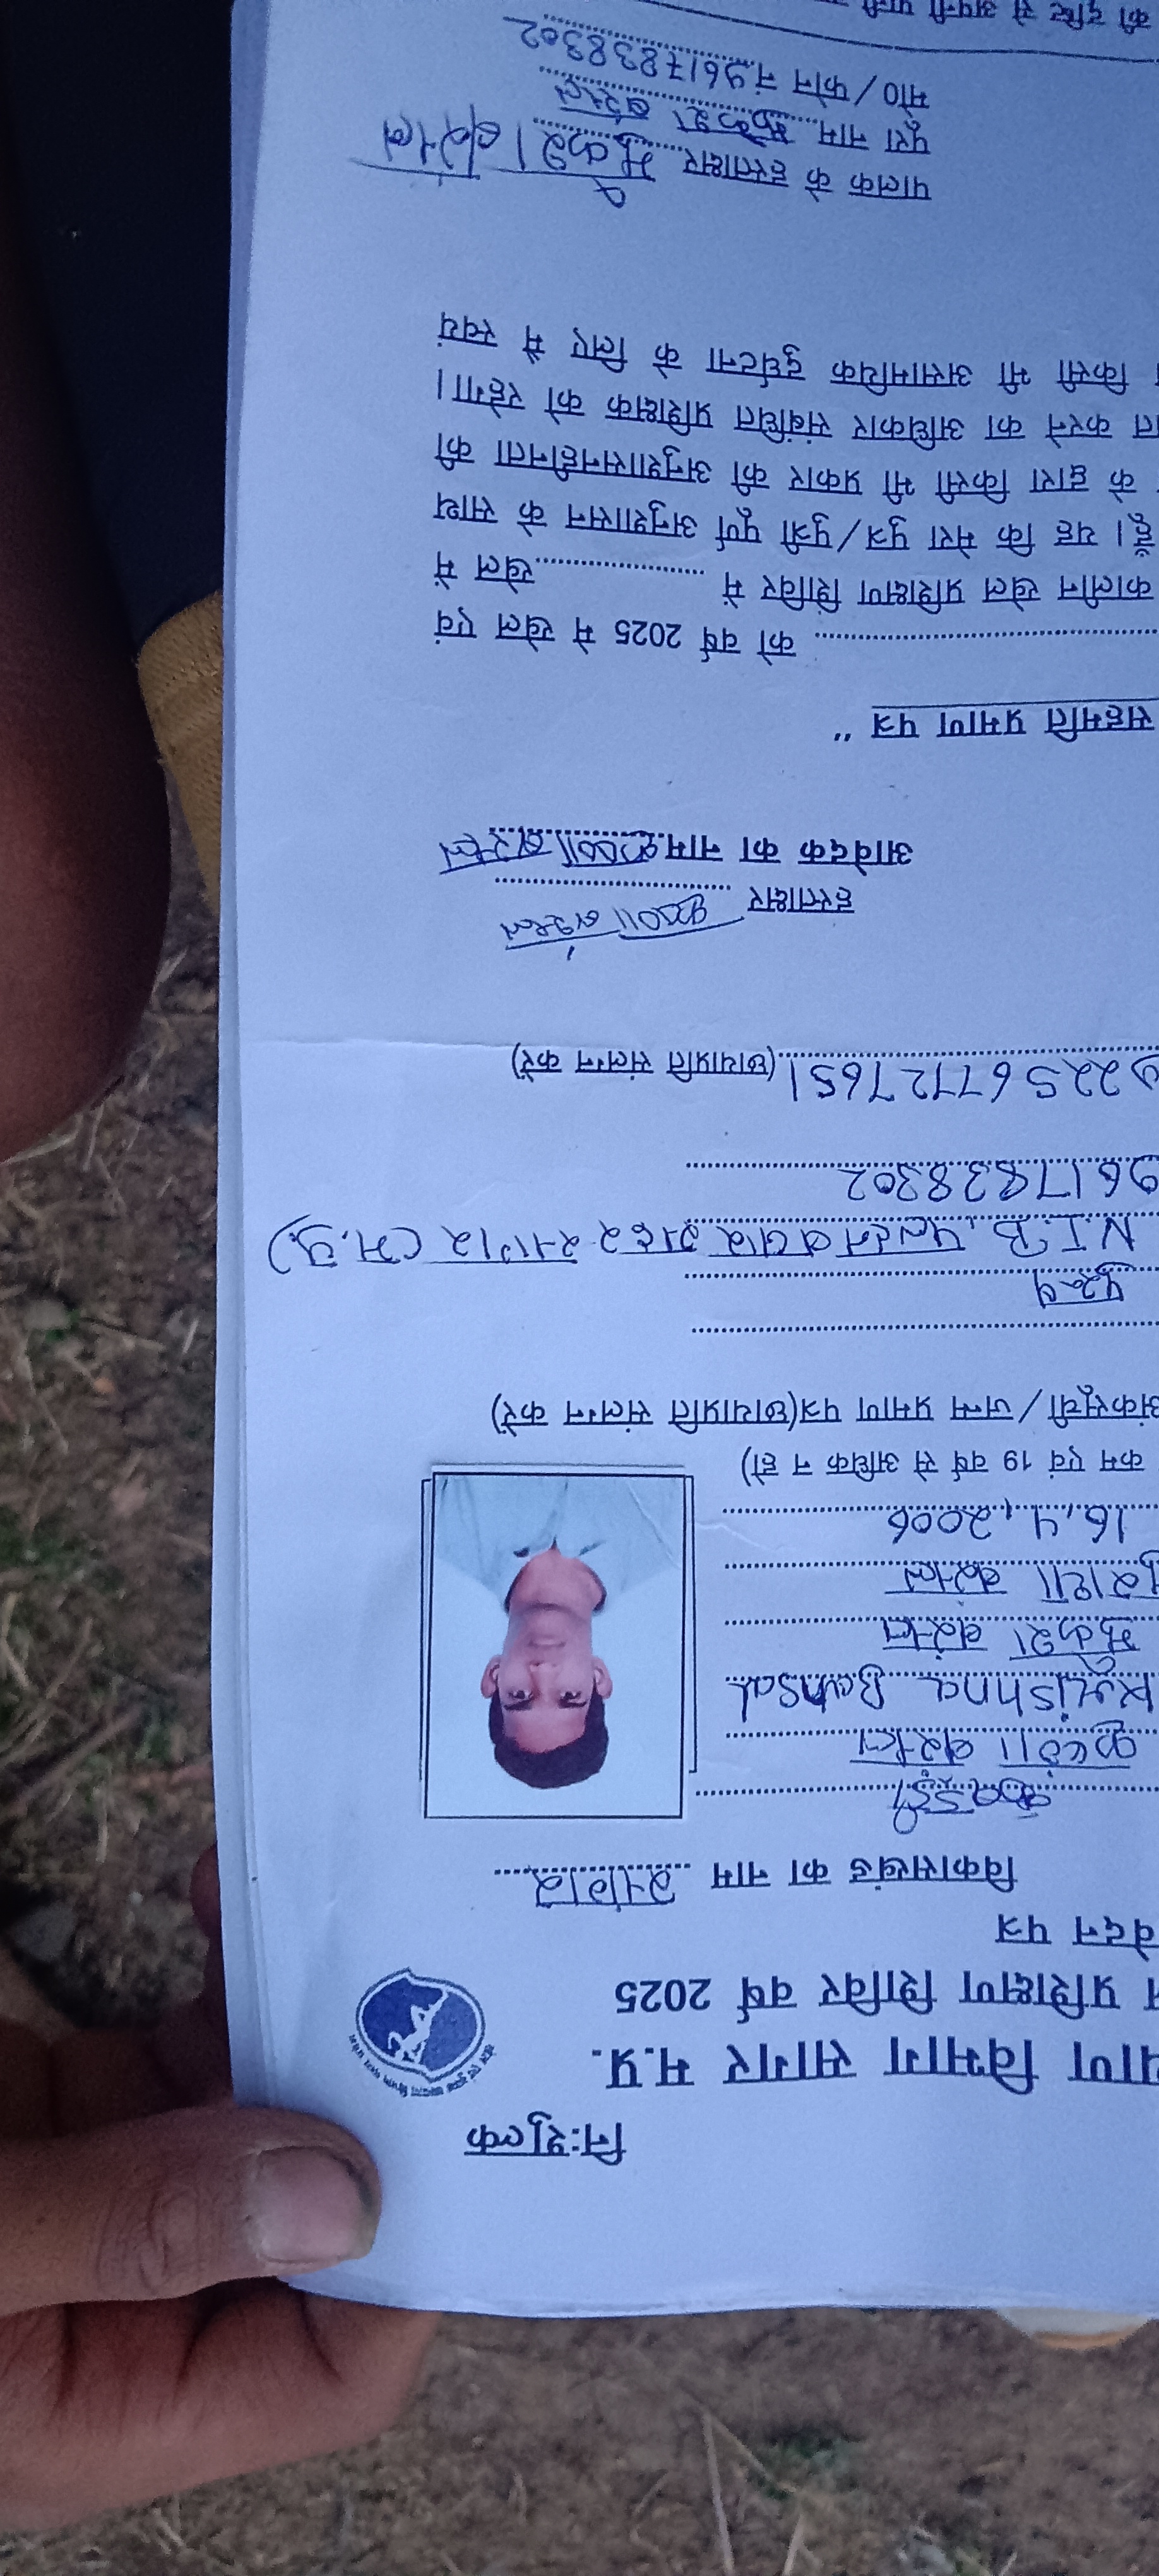 निःशुल्क
याण विभाग सागर म.प्र.
न प्रशिक्षण शिविर वर्ष 2025
वेदन पत्र
विकासखंड का नाम सागर
कबड्डी
कृष्णा बंसल
Krishna Bansal
मुकेश बंसल
बंसल
16,4,2006
कम एवं 19 वर्ष से अधिक न हो)
अंकसूची/जन्म प्रमाण पत्र(छायाप्रति संलग्न करें)
पुरुष
N.I.B. सागर (म.प्र)
9617838302
225677127651 (छायाप्रति संलग्न करें)
हस्ताक्षर कृष्णा बंसल
आवेदक का नाम कृष्णा बंसल
सहमति प्रमाण पत्र "
को वर्ष 2025 मे खेल एवं
कालीन खेल प्रशिक्षण शिविर में खेल में
हूँ। यह कि मेरा पुत्र/पुत्री पूर्ण अनुशासन के साथ
के द्वारा किसी भी प्रकार की अनुशासनहीनता की
त करने का अधिकार संबंधित प्रशिक्षक को रहेगा।
किसी भी असामयिक दुर्घटना के लिए मैं स्वयं
पालक के हस्ताक्षर मुकेश बंसल
पूरा नाम मुकेश बंसल
मो0/फोन नं. 9617838302
की दृष्टि से अपनी